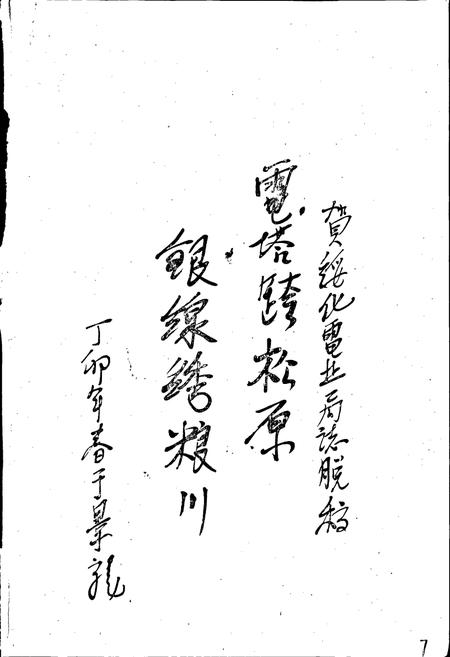 賀綏化電业局誌脱稿
電塔跨松原
銀線綉粮川
丁卯年春于景龍
7